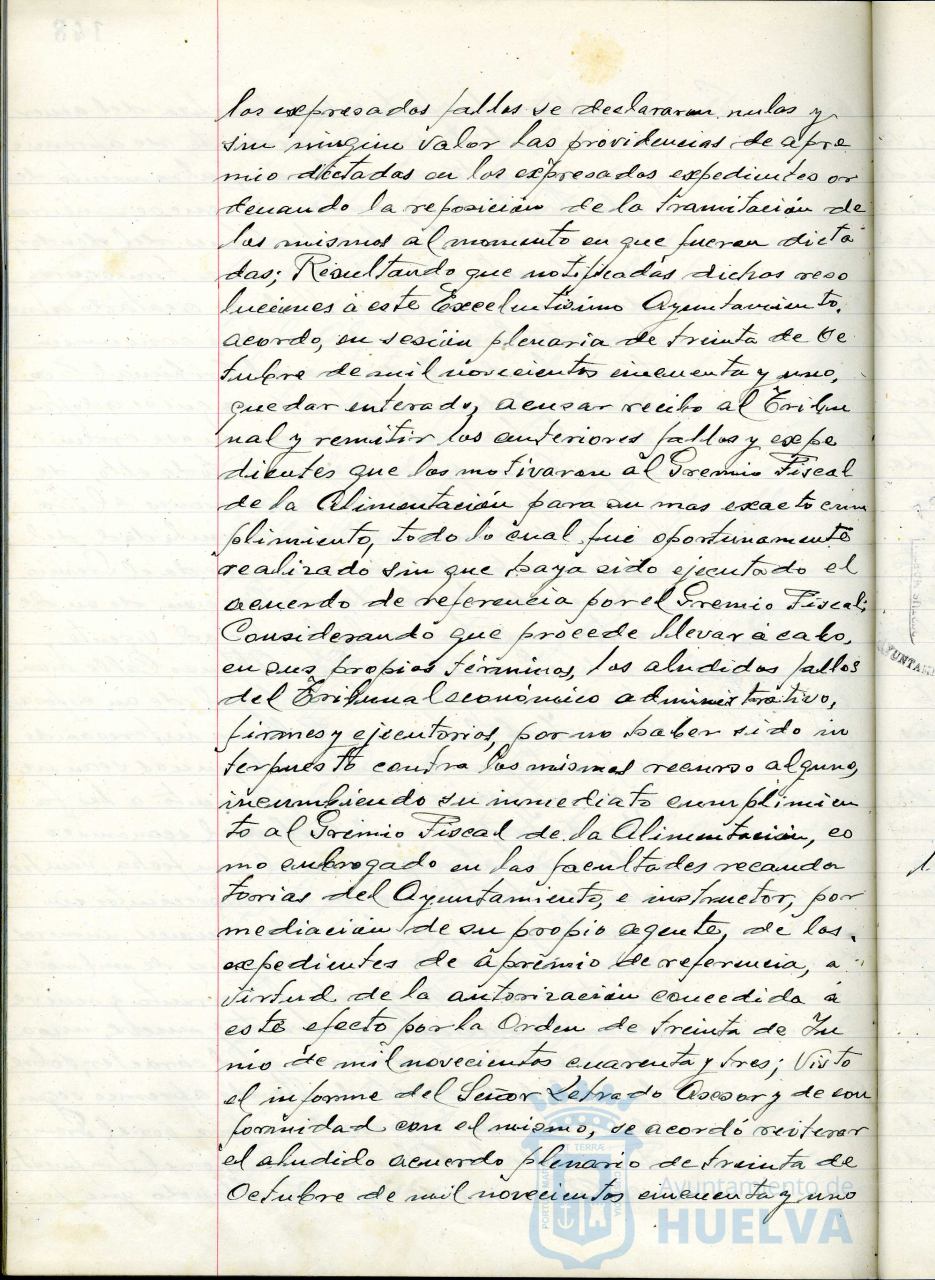 los expresados fallos se declararon nulos y
sin ningún valor las providencias de apre
mio dictadas en los expresados expedientes or
denando la reposición de la tramitación de
los mismos al momento en que fueron dicta
das; Resultando que notificadas dichas reso
luciones á este Excelentísimo Ayuntamiento,
acordo, en sesión plenaria de treinta de Oc
tubre de mil novecientos cincuenta y uno,
quedar enterado, acusar recibo al Tribu
nal y remitir los anteriores fallos y expe
dientes que los motivaron al Gremio Fiscal
de la Alimentación para su mas exacto cum
plimiento, todo lo cual fué oportunamente
realizado sin que haya sido ejecutado el
acuerdo de referencia por el Gremio Fiscal;
Considerando que procede llevar á cabo,
en sus propios términos, los aludidos fallos
del Tribunal económico administrativo,
firmes y ejecutorios, por no haber sido in
terpuesto contra los mismos recurso alguno,
incumbiendo su inmediato cumplimien
to al Gremio Fiscal de la Alimentación, co
mo subrogado en las facultades recauda
torias del Ayuntamiento, e instructor, por
mediación de su propio agente, de los
expedientes de apremio de referencia, a
virtud de la autorización concedida á
este efecto por la Orden de treinta de Ju
nio de mil novecientos cuarenta y tres; Visto
el informe del Señor Letrado Asesor y de con
formidad con el mismo, se acordó reiterar
el aludido acuerdo plenario de treinta de
Octubre de mil novecientos cincuenta y uno
Ayuntamiento de
HUELVA